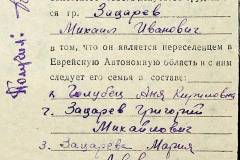 ся гр. Задарев
Михаил Иванович
в том, что он является переселенцем в
Еврейскую Автономную область и с ним
следует его семья в составе:
1. Голубец Аня Кирилловна
2. Задарев Григорий
Михайлович
3. Задарева Мария